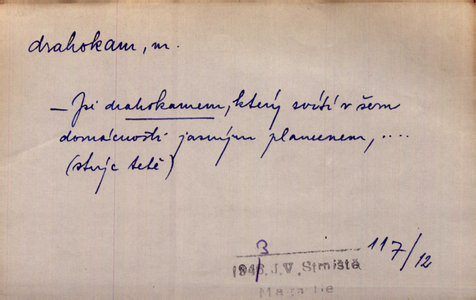 drahokam, m.
– Jsi drahokamem, který svítí v šem
domácnosti jasným plamenem, ....
(strýc tetě)
3
117/12
1946 J.V. Strniště